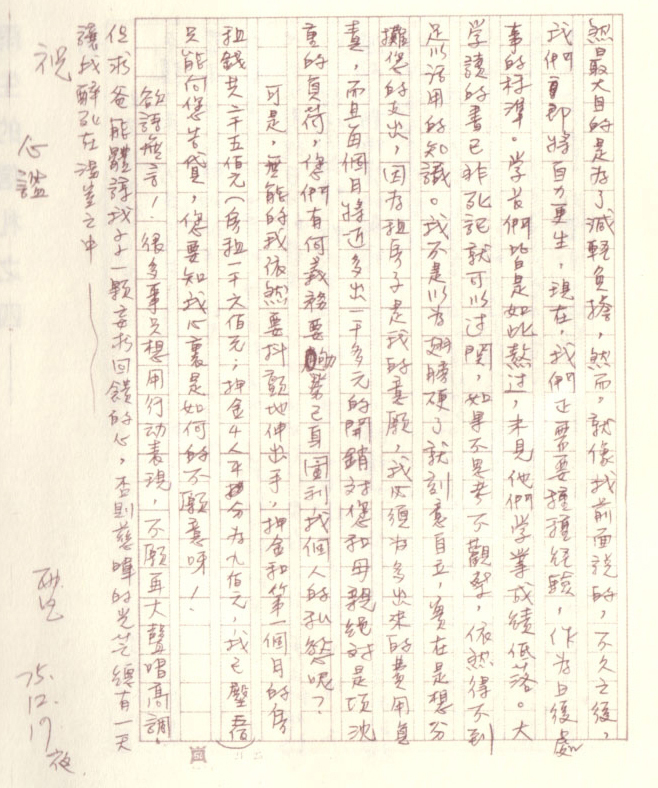 然最大目的是為了減輕負擔，然而，就像我前面說的，不久之後，
我們即將自力更生，現在，我們正需要種種經驗，作為日後處
事的標準。學長們皆是如此熬過，未見他們學業成績低落。大
學讀的書已非死記就可以过関，如果不思考不觀察，依然得不到
足以活用的知識。我不是以為翅膀硬了就刻意自立，實在是想分
攤您的支出，因為租房子是我的意願，我必須為多出來的費用負
責，而且每個月將近多出一千多元的開銷对您和母親絕对是項沈
重的負荷，您們有何義務要己身圖利我個人的私慾呢？
可是，無能的我依然要抖顫地伸出手，押金和第一個月的房
租錢共二千五佰元（房租一千六佰元；押金4人平分為九佰元，我已墊
只能向您告貸，您要知我心裏是如何的不願意呀！
欲語無言！很多事只想用行动表現，不願再大聲唱高調。
但求爸能體諒我一顆妄想回饋的心，否則慈暉的光芒總有一天
讓我醉死在溫豈之中
祝
心謐
75.12.17夜.